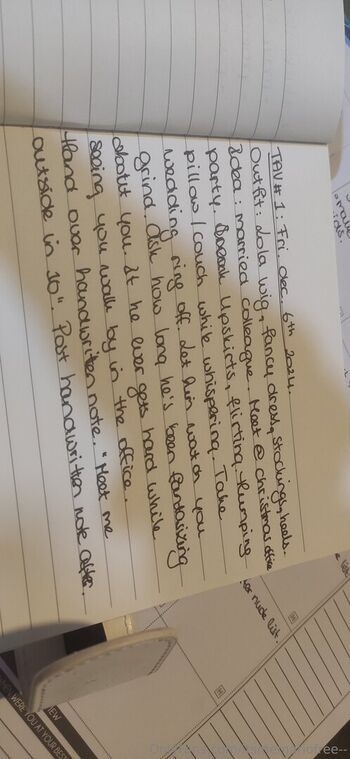 JAV # 1: Fri. dec. 6th 2024.
Outfit: Lola wig, fancy dress, stockings, heels.
Idea: married colleague. Meet @ christmas office
party. Upskirts, flirting. Humping
pillow / couch while whispering. Take
wedding ring off. Let him watch you
grind. Ask how long he's been fantasizing
about you. If he ever gets hard while
seeing you walk by in the office.
Hand over handwritten note. "Meet me
outside in 10". Post handwritten note after.
nude list.
VIEW
WERE YOU AT YOUR BEST